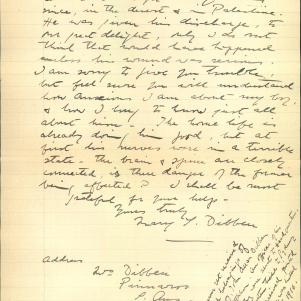 since, in the desert & in Palestine.
He was given his discharge, to
our great delight, only I do not
think that would have happened
unless his wound was serious.
I am sorry to give you trouble
but feel sure you will understand
how anxious I am about my boy.
& how I long to know just all
about him. The home life is
already doing him good, but at
first his nerves were in a terrible
state. The brain & spine are closely
connected, is there danger of the former
being affected? I shall be most
grateful for your help.
Yours truly
Mary Y. Dibben
Address
Mrs Dibben
Pinnaroo
S. Aus.